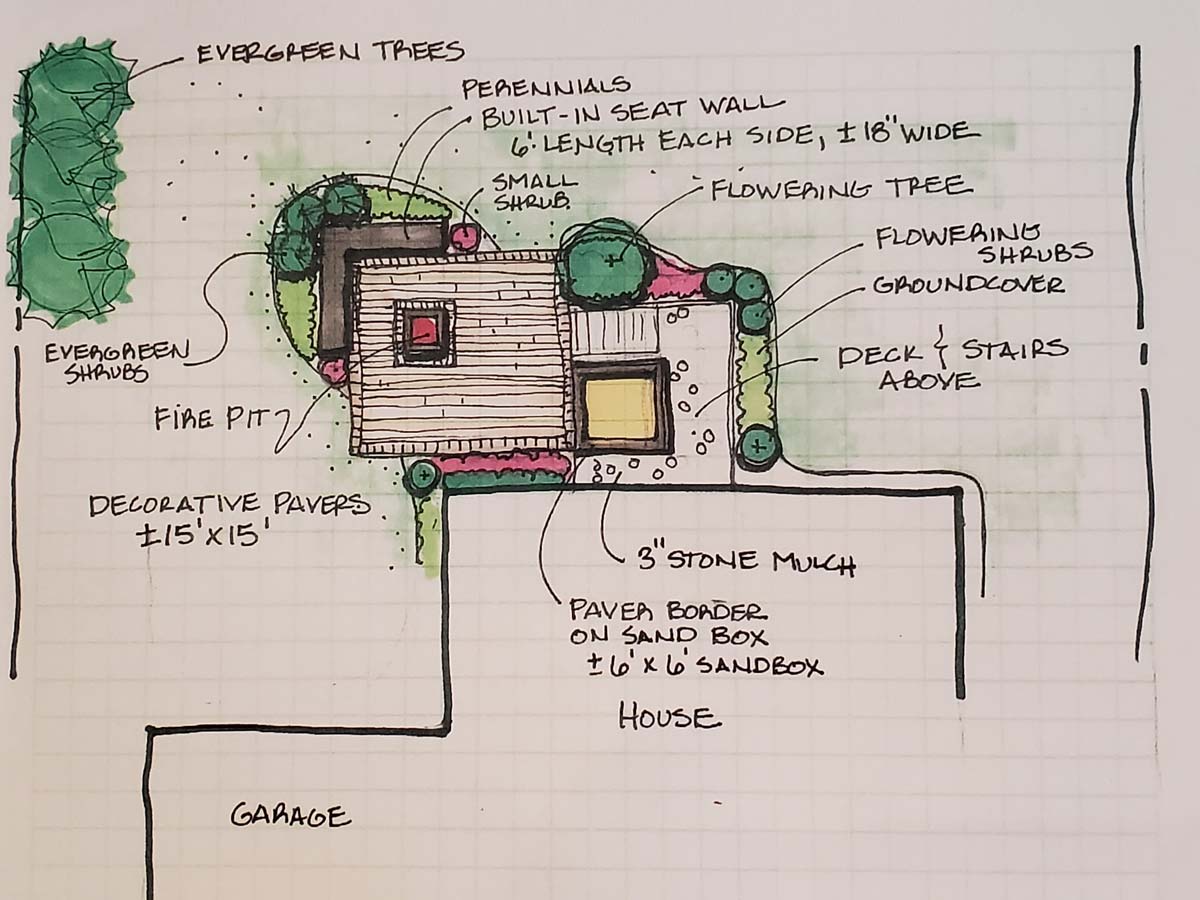 EVERGREEN TREES
PERENNIALS
BUILT-IN SEAT WALL
6' LENGTH EACH SIDE, ±18" WIDE
SMALL
SHRUB.
FLOWERING TREE
FLOWERING
SHRUBS
GROUNDCOVER
EVERGREEN
SHRUBS
DECK & STAIRS
ABOVE
FIRE PIT
DECORATIVE PAVERS
±15'X15'
3" STONE MULCH
PAVER BORDER
ON SAND BOX
±6' X 6' SANDBOX
HOUSE
GARAGE